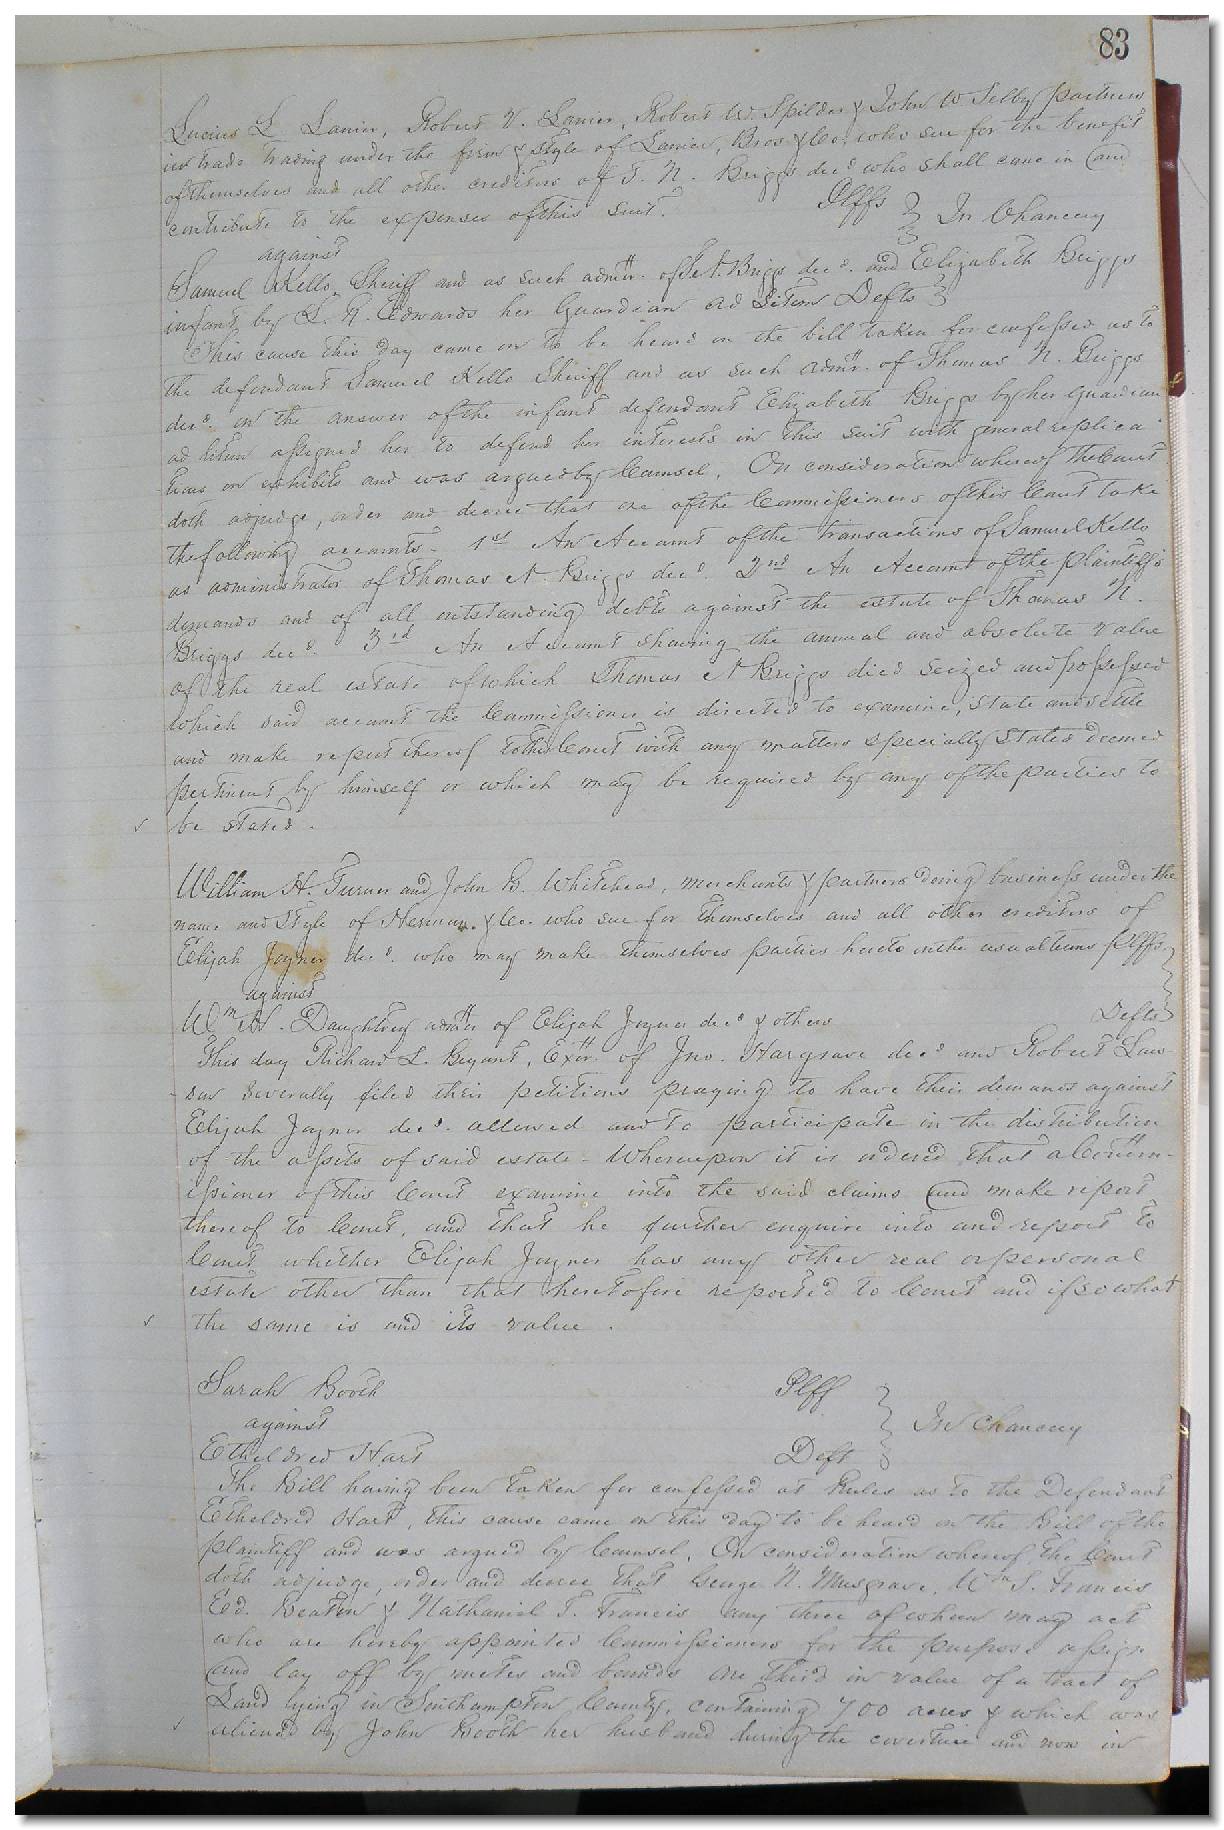 83
Lucius L Lanier, Robert V. Lanier, Robert W. Spilder & John W Selby partners
in trade trading under the firm & style of Lanier, Bros & Co. who sue for the benefit
of themselves and all other creditors of T. N. Briggs decd who shall come in and
contribute to the expenses of this suit. Plffs
against In Chancery
Samuel Kello Sheriff and as such admr. of T. N. Briggs decd. and Elizabeth Briggs
infant by L. R. Edwards her Guardian ad Litem Defts
This cause this day came on to be heard on the bill taken for confessed as to
the defendant Samuel Kello Sheriff and as such admr. of Thomas N. Briggs
decd. on the answer of the infant defendant Elizabeth Briggs by her guardian
ad litem assigned her to defend her interests in this suit with general replica
tions on exhibits and was argued by Counsel. On consideration whereof the Court
doth adjudge, order and decree that one of the Commissioners of this Court take
the following accounts. 1st An Account of the transactions of Samuel Kello
as administrator of Thomas N. Briggs decd. 2nd An Account of the plaintiff's
demands and of all outstanding debts against the estate of Thomas N.
Briggs decd. 3rd An Account showing the annual and absolute value
of the real estate of which Thomas N Briggs died seized and possessed
which said account the Commissioner is directed to examine, state and settle
and make report thereof to the Court with any matters specially stated deemed
pertinent by himself or which may be required by any of the parties to
be stated.
William H. Turner and John B. Whitehead, merchants & partners doing business under the
name and style of & Co. who sue for themselves and all other creditors of
Elijah Joyner decd. who may make themselves parties hereto on the usual terms Plffs
against
Wm N. Daughtrey admr of Elijah Joyner decd & others Defts
This day Richard L. Bryant, Exr. of Jno. Hargrave decd and Robert Law
son severally filed their petitions praying to have their demands against
Elijah Joyner decd. allowed and to participate in the distribution
of the assets of said estate - Whereupon it is ordered that a Comm-
issioner of this Court examine into the said claims and make report
thereof to Court, and that he further enquire into and report to
Court whether Elijah Joyner has any other real or personal
estate other than that heretofore reported to Court and if so what
the same is and its value.
Sarah Booth Plff
against In Chancery
Etheldred Hart Deft
The Bill having been taken for confessed at Rules as to the Defendant
Etheldred Hart, this cause came on this day to be heard on the Bill of the
plaintiff and was argued by Counsel. On consideration whereof the Court
doth adjudge, order and decree that George N. Musgrave, Wm S. Francis
Ed. Beaton & Nathaniel T. Francis any three of whom may act
who are hereby appointed Commissioners for the purpose assign
and lay off by metes and bounds one third in value of a tract of
Land lying in Southampton County, containing 700 acres & which was
aliened by John Booth her husband during the coverture and now in